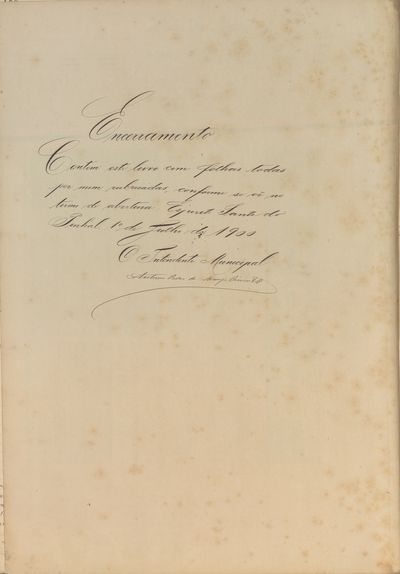 Encerramento
Contem este livro cem folhas todas
por mim rubricadas, conforme se vê no
termo de abertura. Espirito Santo do
Pinhal, 1º de Julho de 1900
O Intendente Municipal